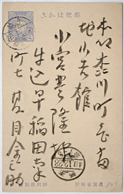 きかは便郵
本郷森川町壱番
地小吉館
小宮豊隆様
牛込早稲田南
町七 夏目金之助